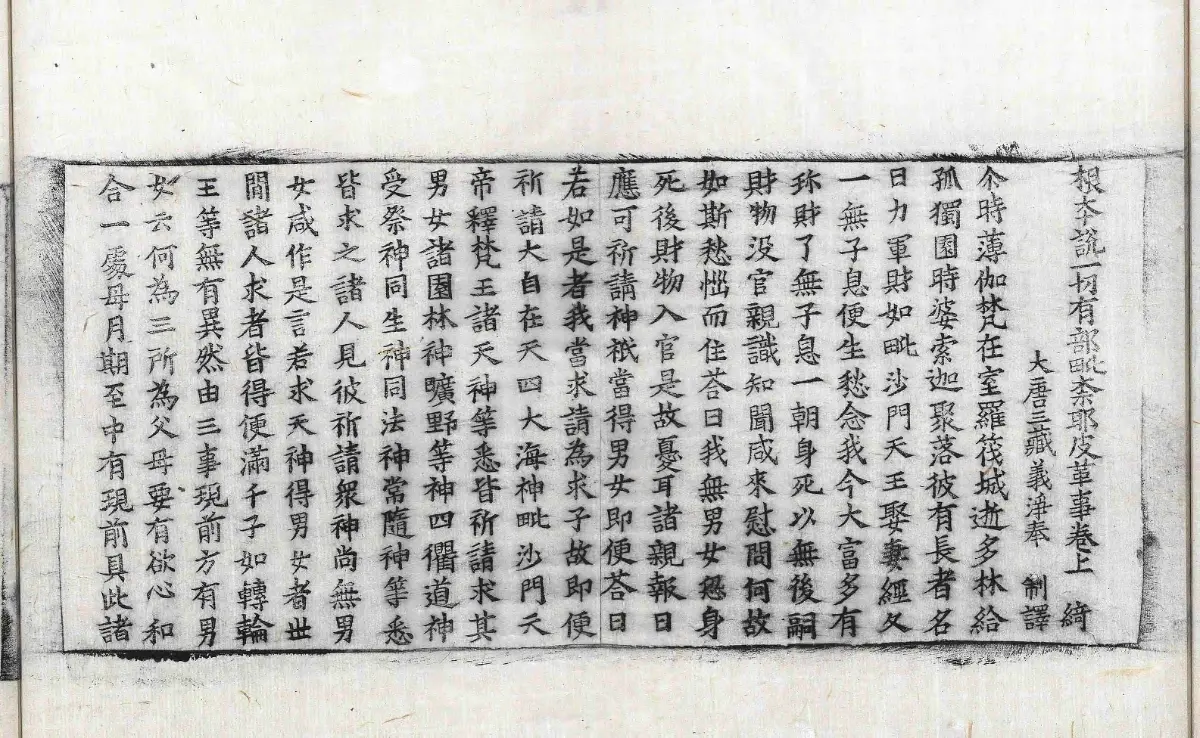 根本説一切有部毗奈耶皮革事卷上　綺
大唐三藏義淨奉　制譯
尒時薄伽梵在室羅筏城逝多林給
孤獨園時婆索迦聚落彼有長者名
日力軍財如毗沙門天王娶妻經久
一無子息便生愁念我今大富多有
珎財了無子息一朝身死以無後嗣
財物没官親識知聞咸來慰問何故
如斯愁惱而住荅曰我無男女恐身
死後財物入官是故憂耳諸親報曰
應可祈請神祇當得男女即便荅曰
若如是者我當求請為求子故即便
祈請大自在天四大海神毗沙門天
帝釋梵王諸天神等悉皆祈請求其
男女諸園林神曠野等神四衢道神
受祭神同生神同法神常隨神等悉
皆求之諸人見彼祈請衆神尚無男
女咸作是言若求天神得男女者丗
閒諸人求者皆得便滿千子如轉輪
王等無有異然由三事現前方有男
女云何為三所為父母要有欲心和
合一處母月期至中有現前具此諸